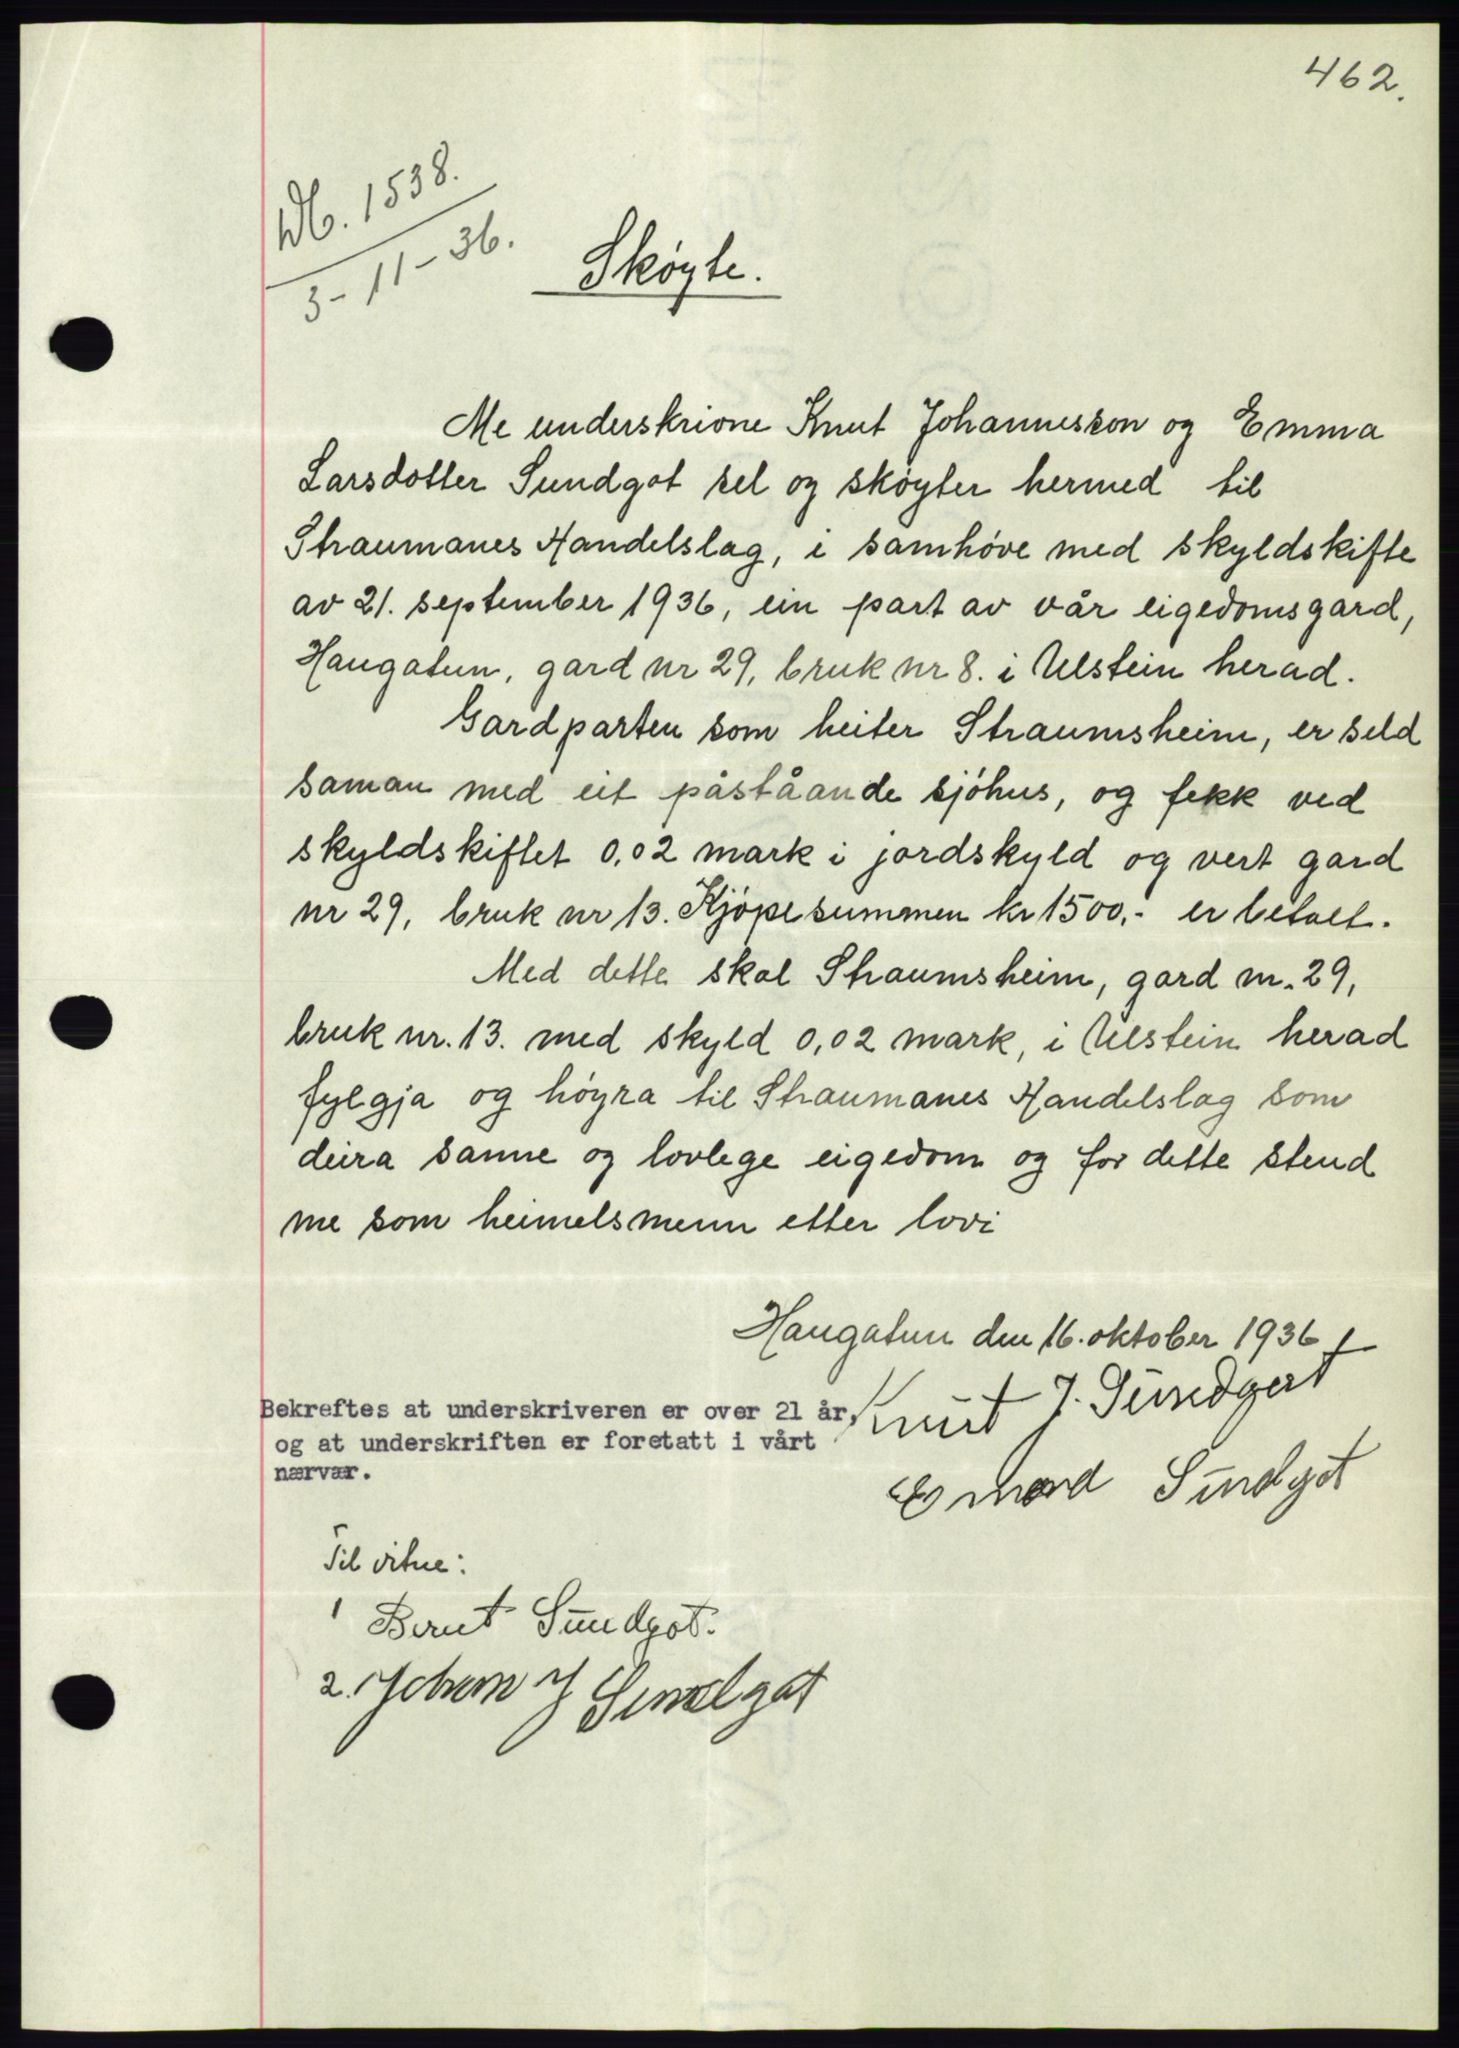 462.
Db. 1538.
3-11-36.
Skøyte.
Me underskrivne Knut Johannesson og Emma
Larsdotter Sundgot sel og skøyter hermed til
Straumanes Handelslag, i samhøve med skyldskifte
av 21. september 1936, ein part av vår eigedomsgard,
Haugatun, gard nr 29, bruk nr 8. i Ulstein herad.
Gardparten som heiter Straumsheim, er seld
saman med eit påståande sjøhus, og fekk ved
skyldskiftet 0,02 mark i jordskyld og vert gard
nr 29, bruk nr 13. Kjøpesummen kr 1500,- er betalt.
Med dette skal Straumsheim, gard nr. 29,
bruk nr. 13. med skyld 0,02 mark, i Ulstein herad
fylgja og høyra til Straumanes Handelslag som
deira sanne og lovlege eigedom og for dette stend
me som heimelsmenn etter lovi
Haugatun den 16. oktober 1936
Knut J. Sundgot
Sundgot
Bekreftes at underskriveren er over 21 år,
og at underskriften er foretatt i vårt
nærvær.
Til vitne:
1 Bernt Sundgot.
2. J Sundgot